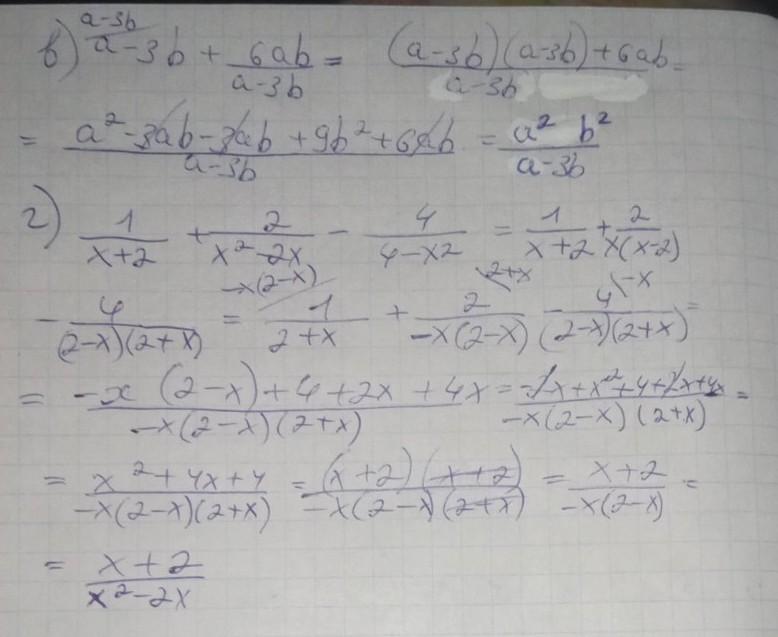 в) a-3b / a-3b + 6ab/(a-3b) = ((a-3b)(a-3b)+6ab)/(a-3b) =
= (a²-3ab-3ab+9b²+6ab)/(a-3b) = (a² b²)/(a-3b)
г) 1/(x+2) + 2/(x²-2x) - 4/(4-x²) = 1/(x+2) + 2/(x(x-2))
-x(2-x) 2+x -x
- 4/((2-x)(2+x)) = 1/(2+x) + 2/(-x(2-x)) - 4/((2-x)(2+x)) =
= (-x(2-x)+4+2x+4x)/(-x(2-x)(2+x)) = (-2x+x²+4+2x+4x)/(-x(2-x)(2+x)) =
= (x²+4x+4)/(-x(2-x)(2+x)) = ((x+2)(x+2))/(-x(2-x)(2+x)) = (x+2)/(-x(2-x)) =
= (x+2)/(x²-2x)